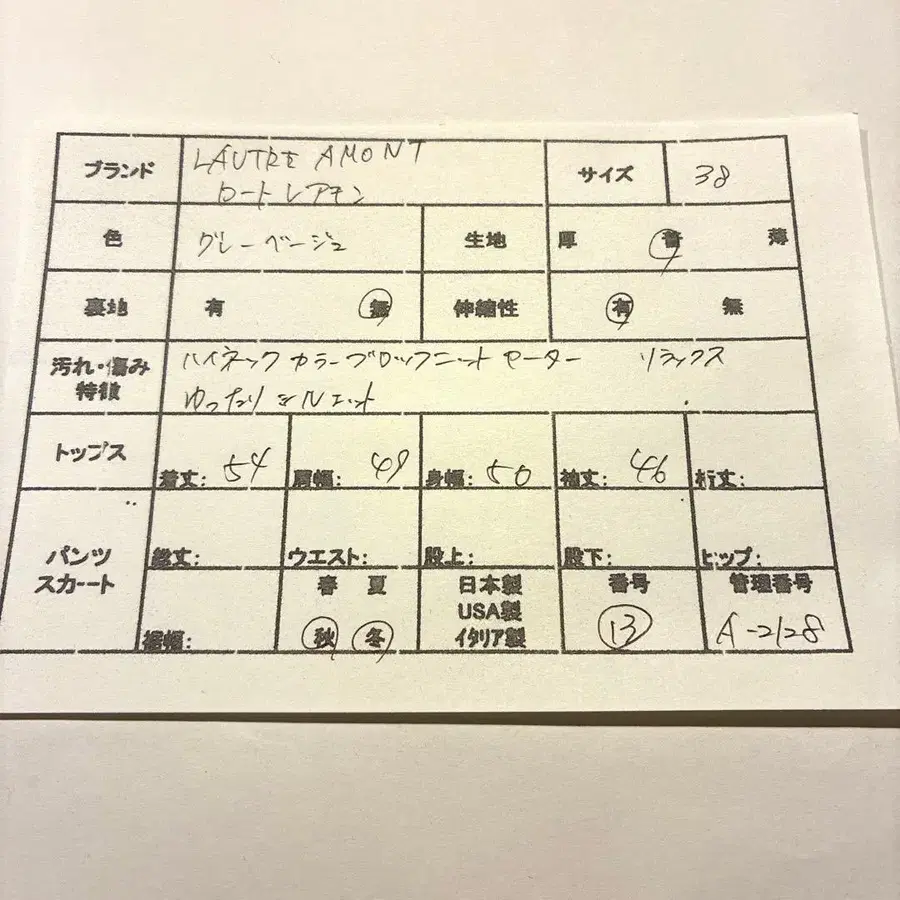 ブランド LAUTRE AMONT サイズ 38
ロートレアモン
色 グレーベージュ 生地 厚 普 薄
裏地 有 無 伸縮性 有 無
汚れ・傷み ハイネック カラーブロックニット セーター リラックス
特徴 ゆったりシルエット
トップス 着丈: 54 肩幅: 49 身幅: 50 袖丈: 46 裄丈:
パンツ 総丈: ウエスト: 股上: 股下: ヒップ:
スカート 春 夏 日本製 番号 管理番号
USA製
裾幅: 秋 冬 イタリア製 13 A-2128